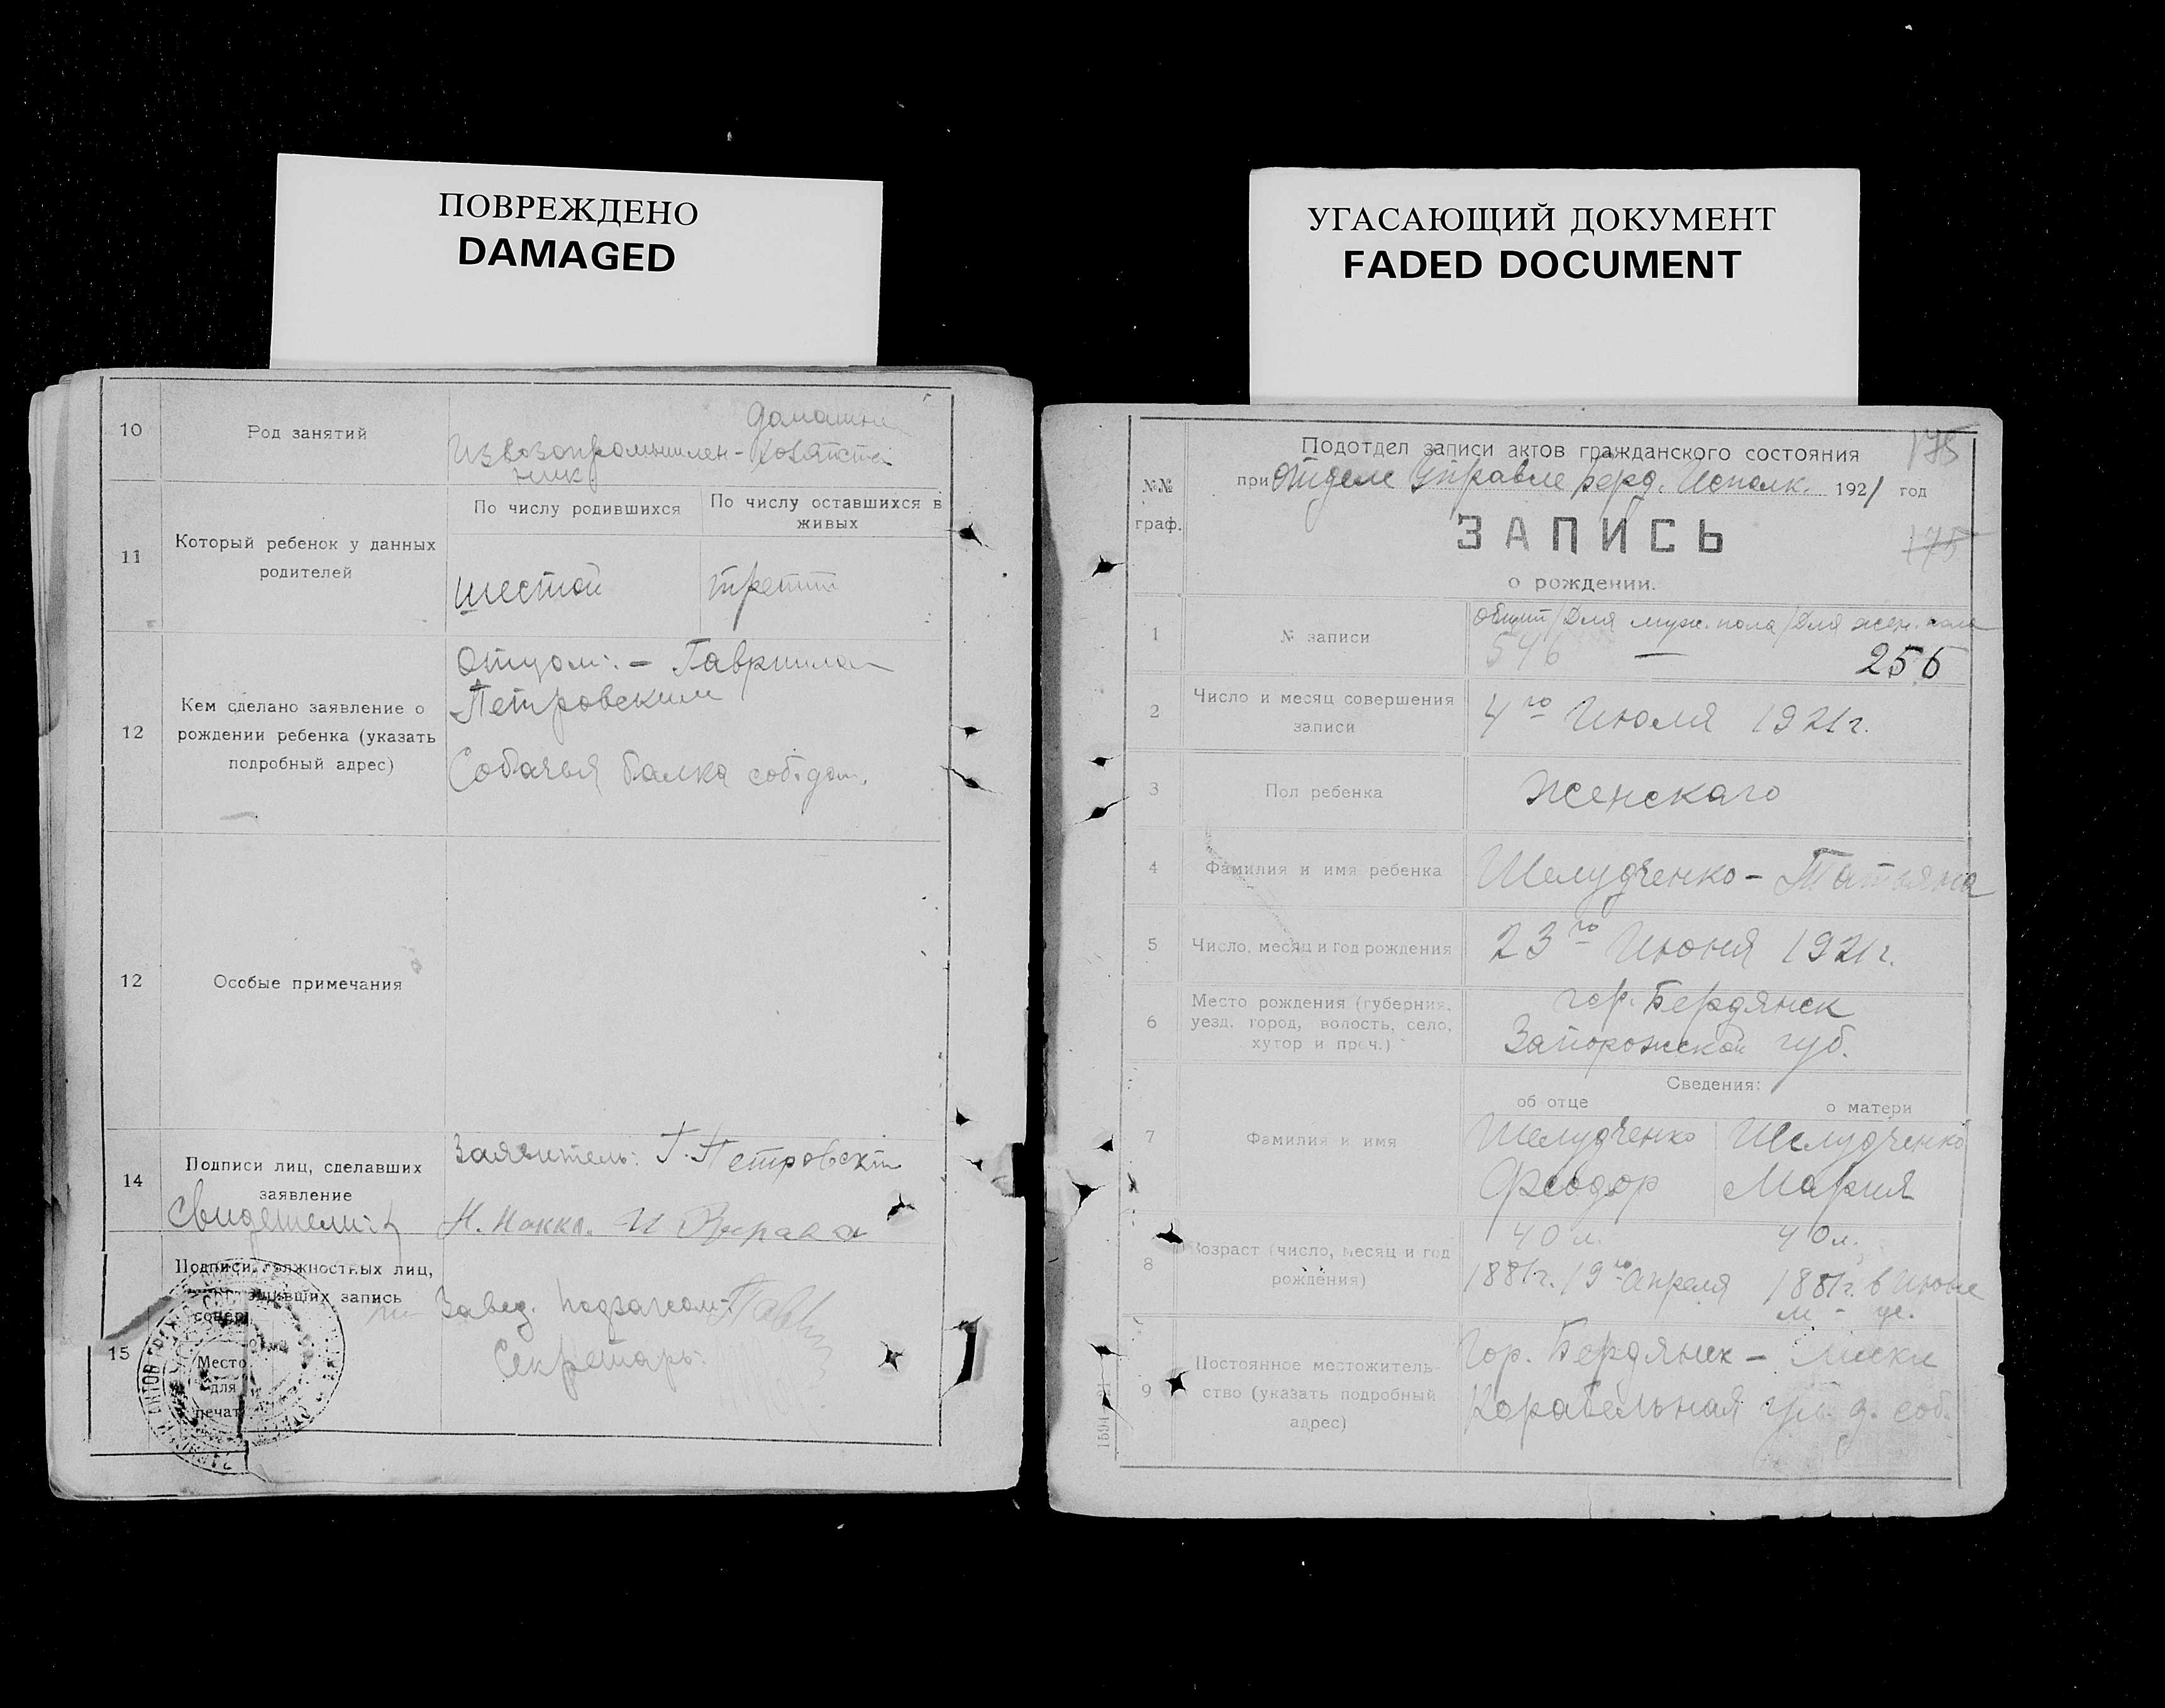 ПОВРЕЖДЕНО
DAMAGED
10
Род занятий
Извозопромышлен-
ник
домашн
хозяйства
11
Который ребенок у данных
родителей
По числу родившихся
По числу оставшихся в
живых
шестой
третий
12
Кем сделано заявление о
рождении ребенка (указать
подробный адрес)
Отцом: - Гавриилом
Петровским
Собачья балка соб. дом.
12
Особые примечания
14
Подписи лиц, сделавших
заявление
Свидетели:
Заявитель: Г. Петровский
Н. И
15
Подписи должностных лиц,
совершивших запись
Место
для
печати
Завед. подзагсом
Секретарь:
УГАСАЮЩИЙ ДОКУМЕНТ
FADED DOCUMENT
175
№№
граф.
Подотдел записи актов гражданского состояния
при Отделе Управле Берд. Исполк. 1921 год
ЗАПИСЬ
175
о рождении.
1
№ записи
Общий / Для муж. пола / Для жен. пола
546 — 256
2
Число и месяц совершения
записи
4го Июля 1921 г.
3
Пол ребенка
Женскаго
4
Фамилия и имя ребенка
Шелудченко - Татьяна
5
Число, месяц и год рождения
23го Июня 1921 г.
6
Место рождения (губерния,
уезд, город, волость, село,
хутор и проч.)
гор. Бердянск
Запорожской губ.
Сведения:
об отце
о матери
7
Фамилия и имя
Шелудченко
Феодор
Шелудченко
Мария
8
Возраст (число, месяц и год
рождения)
40 л.
1881 г. 19го Апреля
40 л.
1881 г. в Июне
м - це.
9
Постоянное местожитель-
ство (указать подробный
адрес)
Гор. Бердянск - Лиски
Корабельная ул. д. соб.